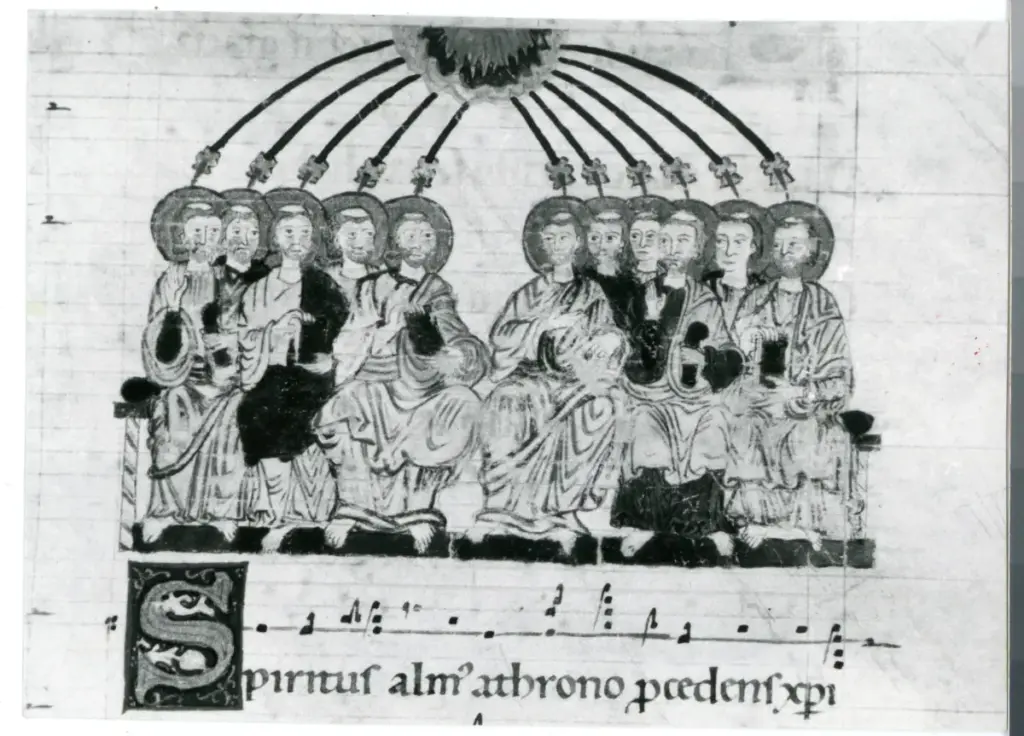 Spiritus alm᾽ athrono ꝓcedens xp̅i